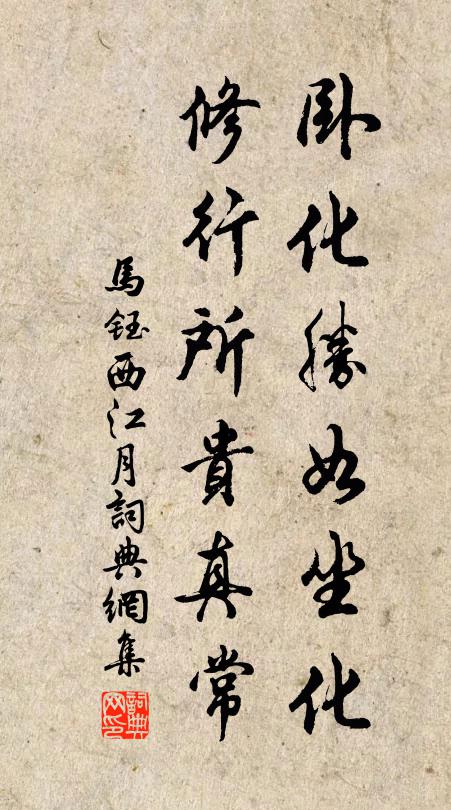 卧化勝如坐化
修行所貴真常
馬鈺西江月詞典網集
詞典网印